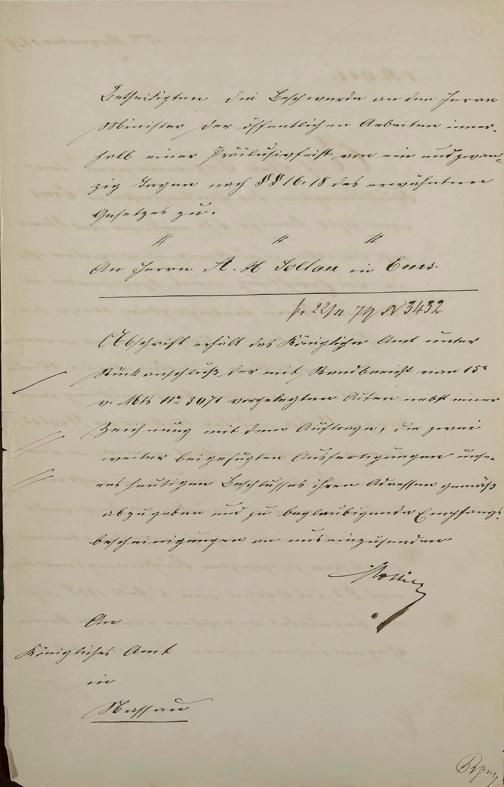 Betheiligten die Beschwerde an den Herrn
Minister der öffentlichen Arbeiten inner-
halb einer Präclusivfrist von ein und zwan-
zig Tagen nach §§ 16.18 des erwähnten
Gesetzes zu.
An Herrn A. H. Soltau in Ems.
pr 22/11 79 N 3432
Abschrift erhält das Königliche Amt unter
Rückanschluß der mit Randbericht vom 15ten
v. Mts No 3071 vorgelegten Akten nebst einer
Zeichnung mit dem Auftrage, die zwei
weiter beigefügten Ausfertigungen unse-
res heutigen Beschlusses ihren Adressen gemäß
abzugeben und zu beglaubigende Empfangs-
bescheinigungen an uns einzusenden.
An
Königliches Amt
in
Nassau